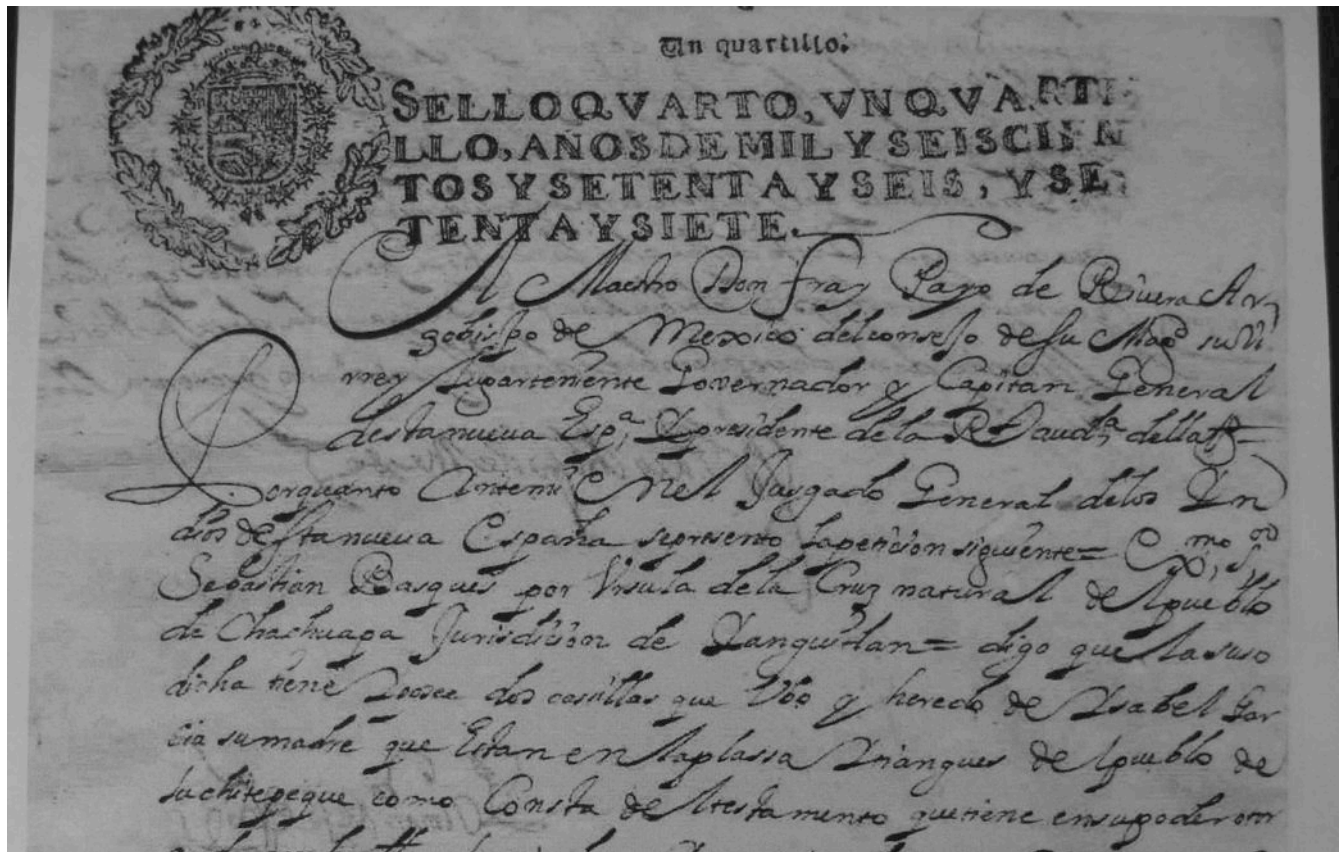 Un quartillo.
SELLO QVARTO, VN QVARTI
LLO, AÑOS DE MIL Y SEISCIEN
TOS Y SETENTA Y SEIS, Y SE
TENTA Y SIETE.
Maestro Don fray Payo de Riuera Ar
zobispo de Mexico del consejo de su Magd su Vi
rrey lugarteniente Gouernador y Capitan General
desta nueua Espa, y presidente de la Rl Auda della
Por quanto Ante mi En el Jusgado General de los Yn
dios desta nueua España se presento la peticion siguiente = Exmo Sor
Sebastian Basques por Vrsula de la Cruz natural del pueblo
de Chachuapa Jurisdicion de Yanguitlan = digo que la suso
dicha tiene y posee dos casillas que Vbo y heredo de Ysabel Gar
cia su madre que Estan en la plassa y tiangues del pueblo de
Suchitepeque como Consta del testamento que tiene en su poder